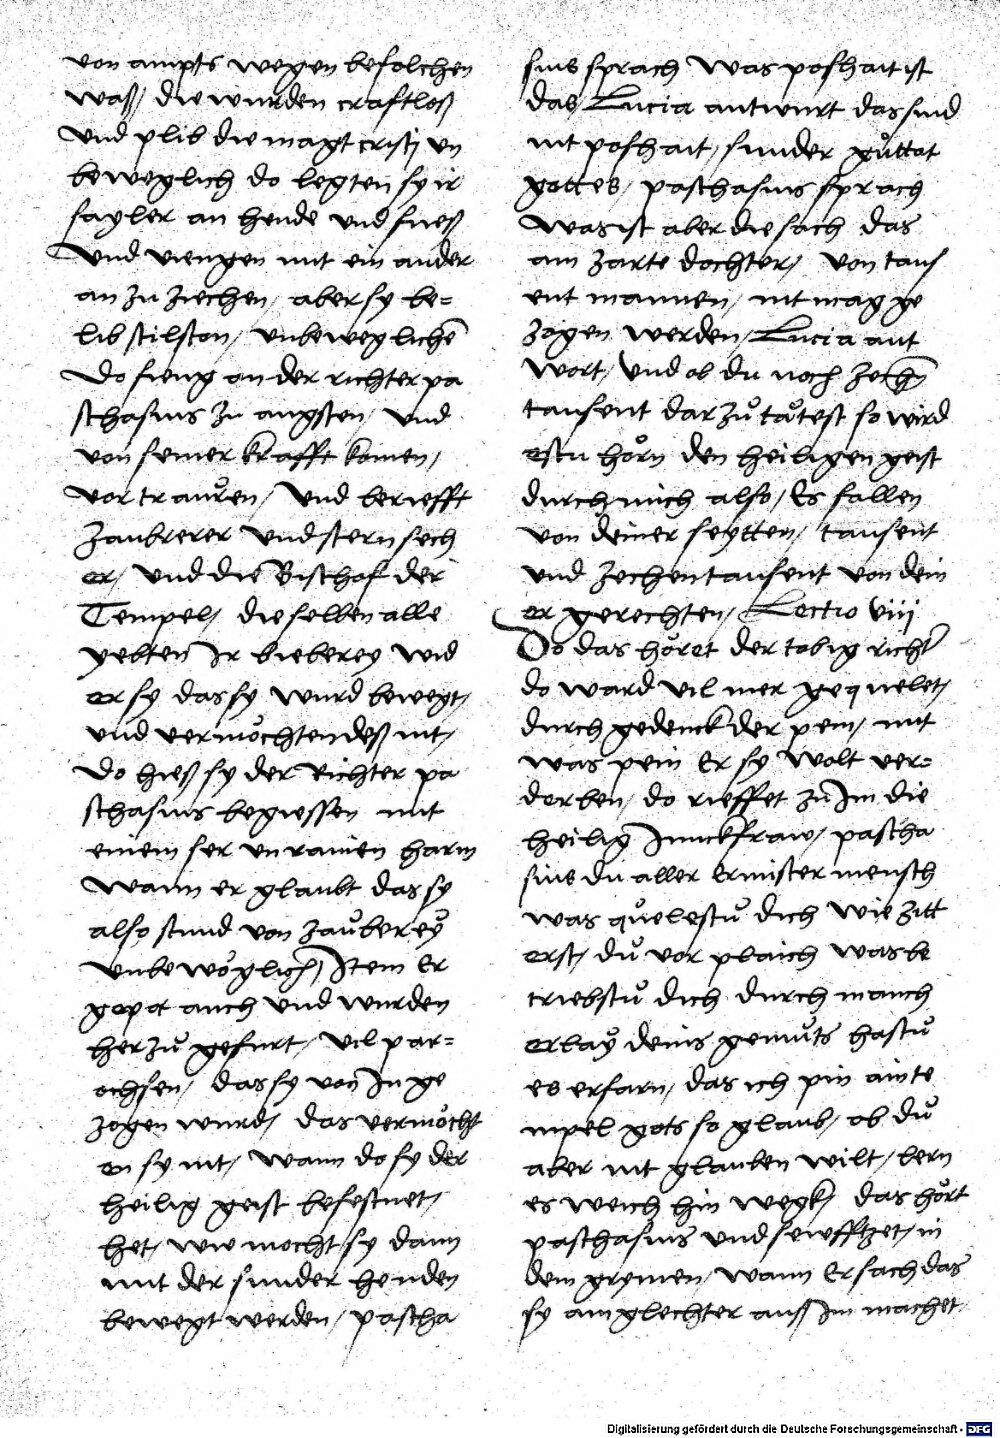 von ampts wegen befolchen
waß/ die wurden craftloß
Und plib die magt cristi vn
beweglich do legten sy ir
sayler an hende und fueß
Und viengen mit ein ander
an zu ziechen/ aber sy be=
lib stilston/ unbeweglichē
Do fieng an der richter pa
schasius zu angsten/ und
von seiner krafft komen/
vor trauren/ Und beriefft
Zaubrerer und sternsech
er/ und die Bischof der
Tempel/ die selben alle
yebten Ir bieberey wid
er sy das sy wurd bewegt/
und vermöchten deß nit/
do hieß sy der richter pa
schasius begiessen mit
einem ser unrainen harm
Wann er glaubt das sy
also stund von zauberey
unbewöglich/ Item Er
gepot auch Und wurden
herzů gefurt/ vil par=
ochsen/ das sy von In ge
zogen wurd/ das vermöcht
en sy nit/ wann do sy der
heilig geist befestnet/
het/ wie mocht sy dann
mit der sunder henden
bewegt werden/ pascha
sius sprach Was poshait ist
das/ Lucia antwurt das sind
nit poshait/ sunder gůttat
gottes/ paschasius sprach
Was ist aber die sach das
ain zarte dochter/ von taus
ent mannen/ nit mag ge
zogen werden/ Lucia ant
wort/ Und ob du noch zechē
tausent darzů tätest so wird
estu hörn den heiligen geist
durch mich also/ Es fallen
von deiner seytten/ tausent
und zechentausent von dein
er gerechten/ Lectio viii
Do das höret der tobig richter
do ward vil mer gequelet/
durch gedenck der pein/ mit
was pein Er sy wolt ver=
derben/ do rieffet zů Im die
heilig Junckfraw/ pascha
sius du aller Ermister mensch
was quelestů dich wie zitt
erst/ dů vor plaich was be
triebstů dich durch manch
erlay deins gemůts hastů
es erfarn/ das ich pin ain te
mpel gots so glaub/ ob dů
aber nit glauben wilt/ lern
es weich hin wegk/ das hört
paschasius und sewfftzet/ in
dem grymen/ wann Er sach das
sy ain glechter auß Im machet/
Digitalisierung gefördert durch die Deutsche Forschungsgemeinschaft - DFG